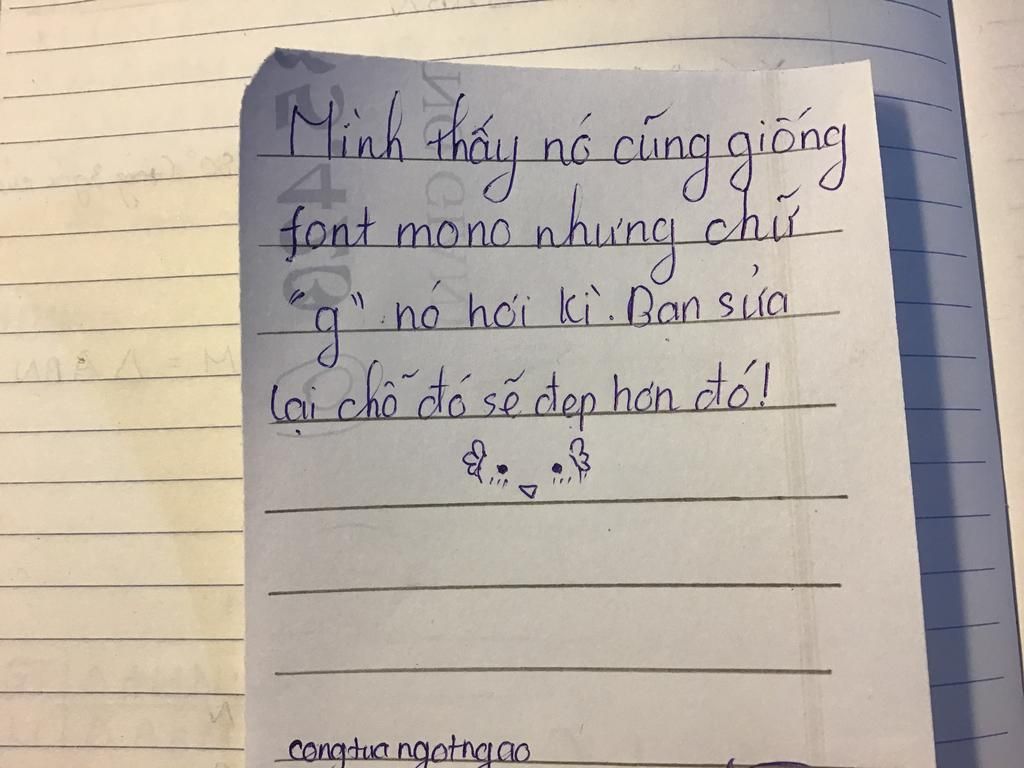 Mình thấy nó cũng giống
font mono nhưng chữ
"g" nó hơi kì. Bạn sửa
lại chỗ đó sẽ đẹp hơn đó!
congtuangotngao